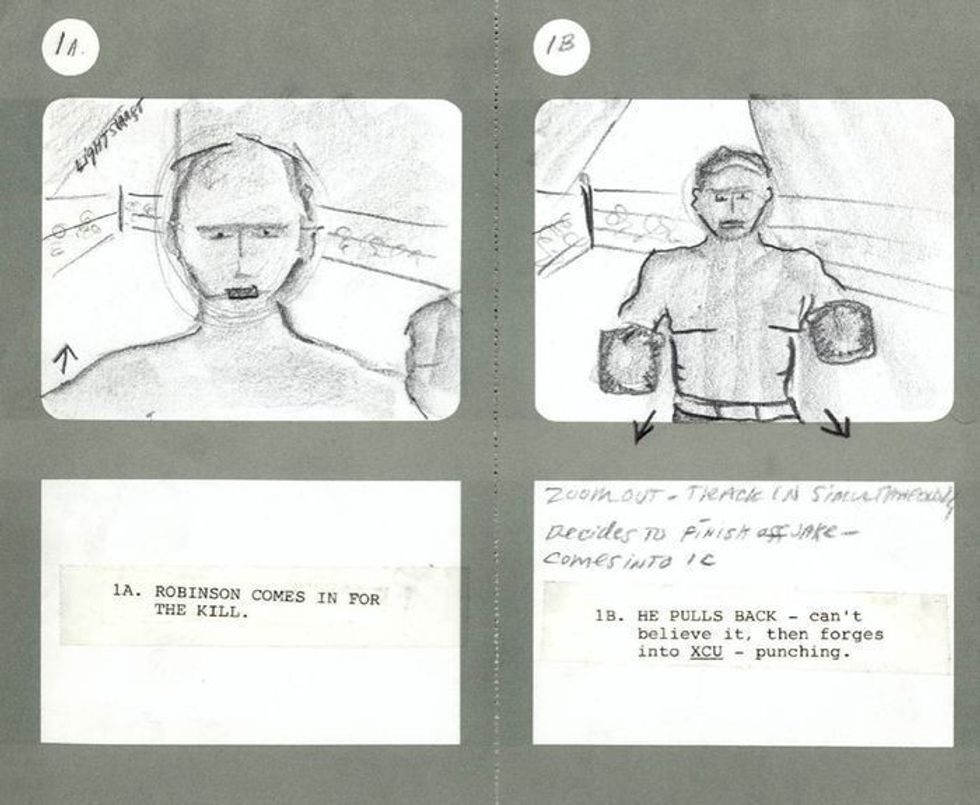 1A.
1B
LIGHT SHAFT
1A. ROBINSON COMES IN FOR
THE KILL.
ZOOM OUT - TRACK IN SIMULTANEOUSLY
DECIDES TO FINISH OFF JAKE -
COMES INTO 1C
1B. HE PULLS BACK - can't
believe it, then forges
into XCU - punching.